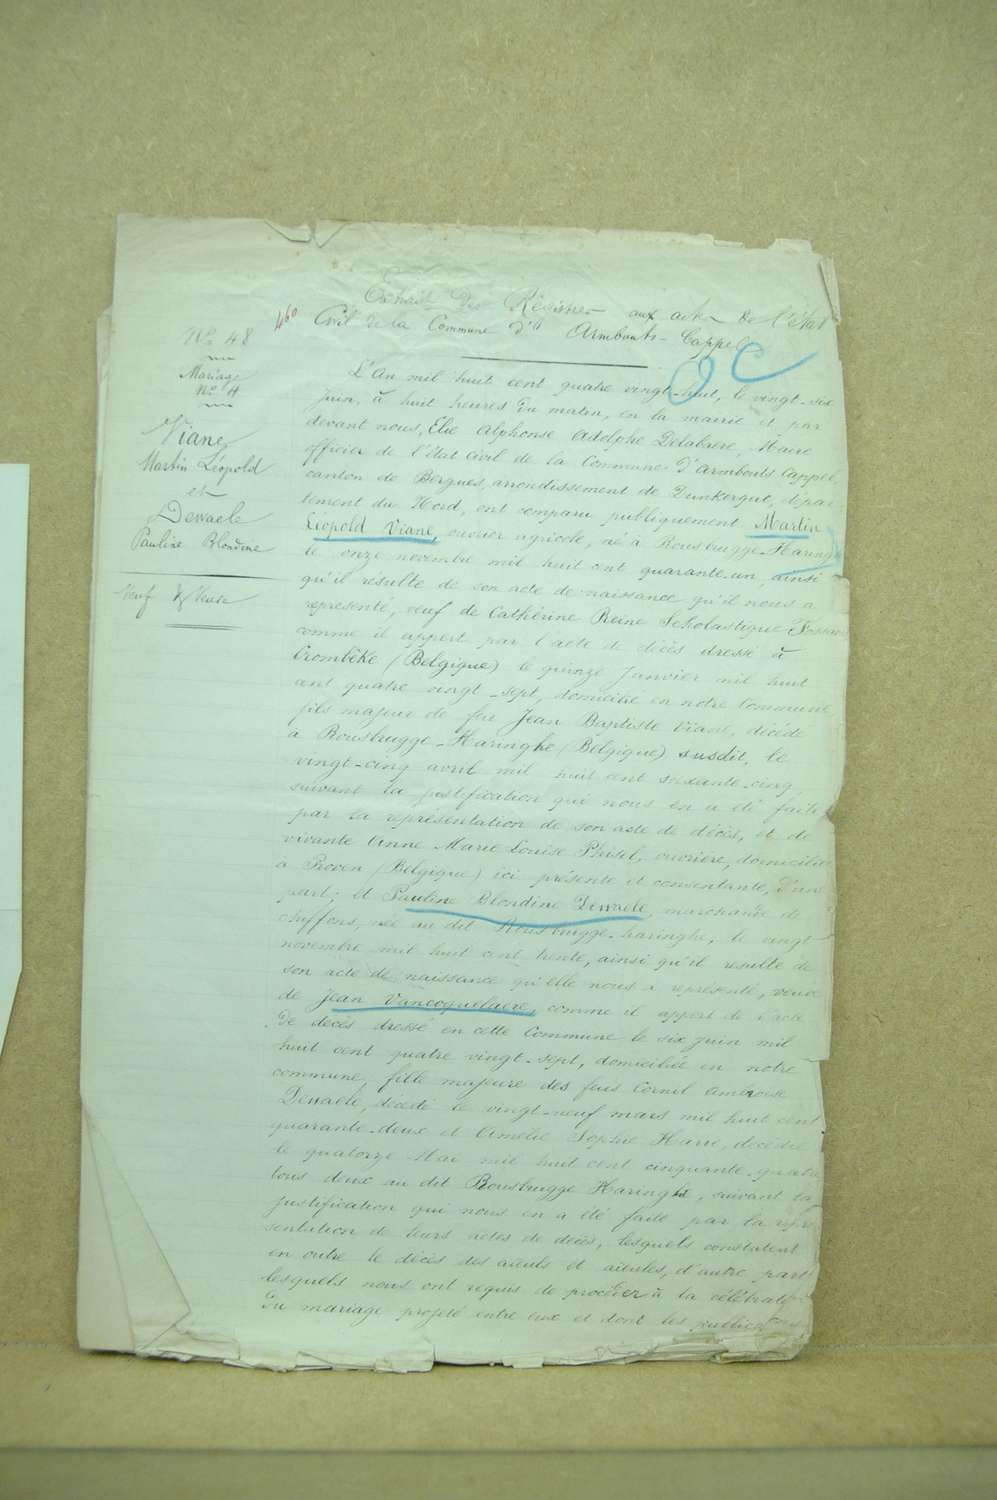 Extrait des Registres aux actes de l'état
460
Civil de la Commune d' Armbouts-Cappel
OC
N° 48
Mariage
N° 4
Viane
Martin Léopold
et
Dewaele
Pauline Blondine
Veuf & Veuve
L'An mil huit cent quatre vingt-huit, le vingt-six
juin, à huit heures du matin, en la mairie et par
devant nous, Elie Alphonse Adolphe Delabaere, Maire
officier de l'état civil de la Commune d'Armbouts Cappel,
canton de Bergues, arrondissement de Dunkerque, dépar
tement du Nord, ont comparu publiquement Martin
Léopold Viane, ouvrier agricole, né à Rousbrugge-Haringhe
le onze novembre mil huit cent quarante-un, ainsi
qu'il résulte de son acte de naissance qu'il nous a
représenté, veuf de Cathérine Reine Scholastique
comme il appert par l'acte de décès dressé à
Crombêke (Belgique) le quinze Janvier mil huit
cent quatre vingt-sept, domicilié en notre Commune
fils majeur de feu Jean Baptiste Viane, décédé
à Rousbrugge-Haringhe (Belgique) susdit, le
vingt-cinq avril mil huit cent soixante-cinq,
suivant la justification qui nous en a été faite
par la représentation de son acte de décès, et de
vivante Anne Marie Louise, ouvrière, domiciliée
à Proven (Belgique) ici présente et consentante, d'une
part; et Pauline Blondine Dewaele, marchande de
chiffons, née au dit Rousbrugge-haringhe, le vingt
novembre mil huit cent trente, ainsi qu'il résulte de
son acte de naissance qu'elle nous a représenté, veuve
de Jean Vancoquelaere, comme il appert de l'acte
de décès dressé en cette Commune le six juin mil
huit cent quatre vingt-sept, domiciliée en notre
commune, fille majeure des feus Cornil Ambroise
Dewaele, décédé le vingt-neuf mars mil huit cent
quarante-deux et Amélie Sophie, décédée
le quatorze Mai mil huit cent cinquante-quatre
tous deux au dit Rousbrugge Haringhe, suivant la
justification qui nous en a été faite par la repré
sentation de leurs actes de décès, lesquels constatent
en outre le décès des aïeuls et aïeules, d'autre part
lesquels nous ont requis de procéder à la célébration
du mariage projeté entre eux et dont les